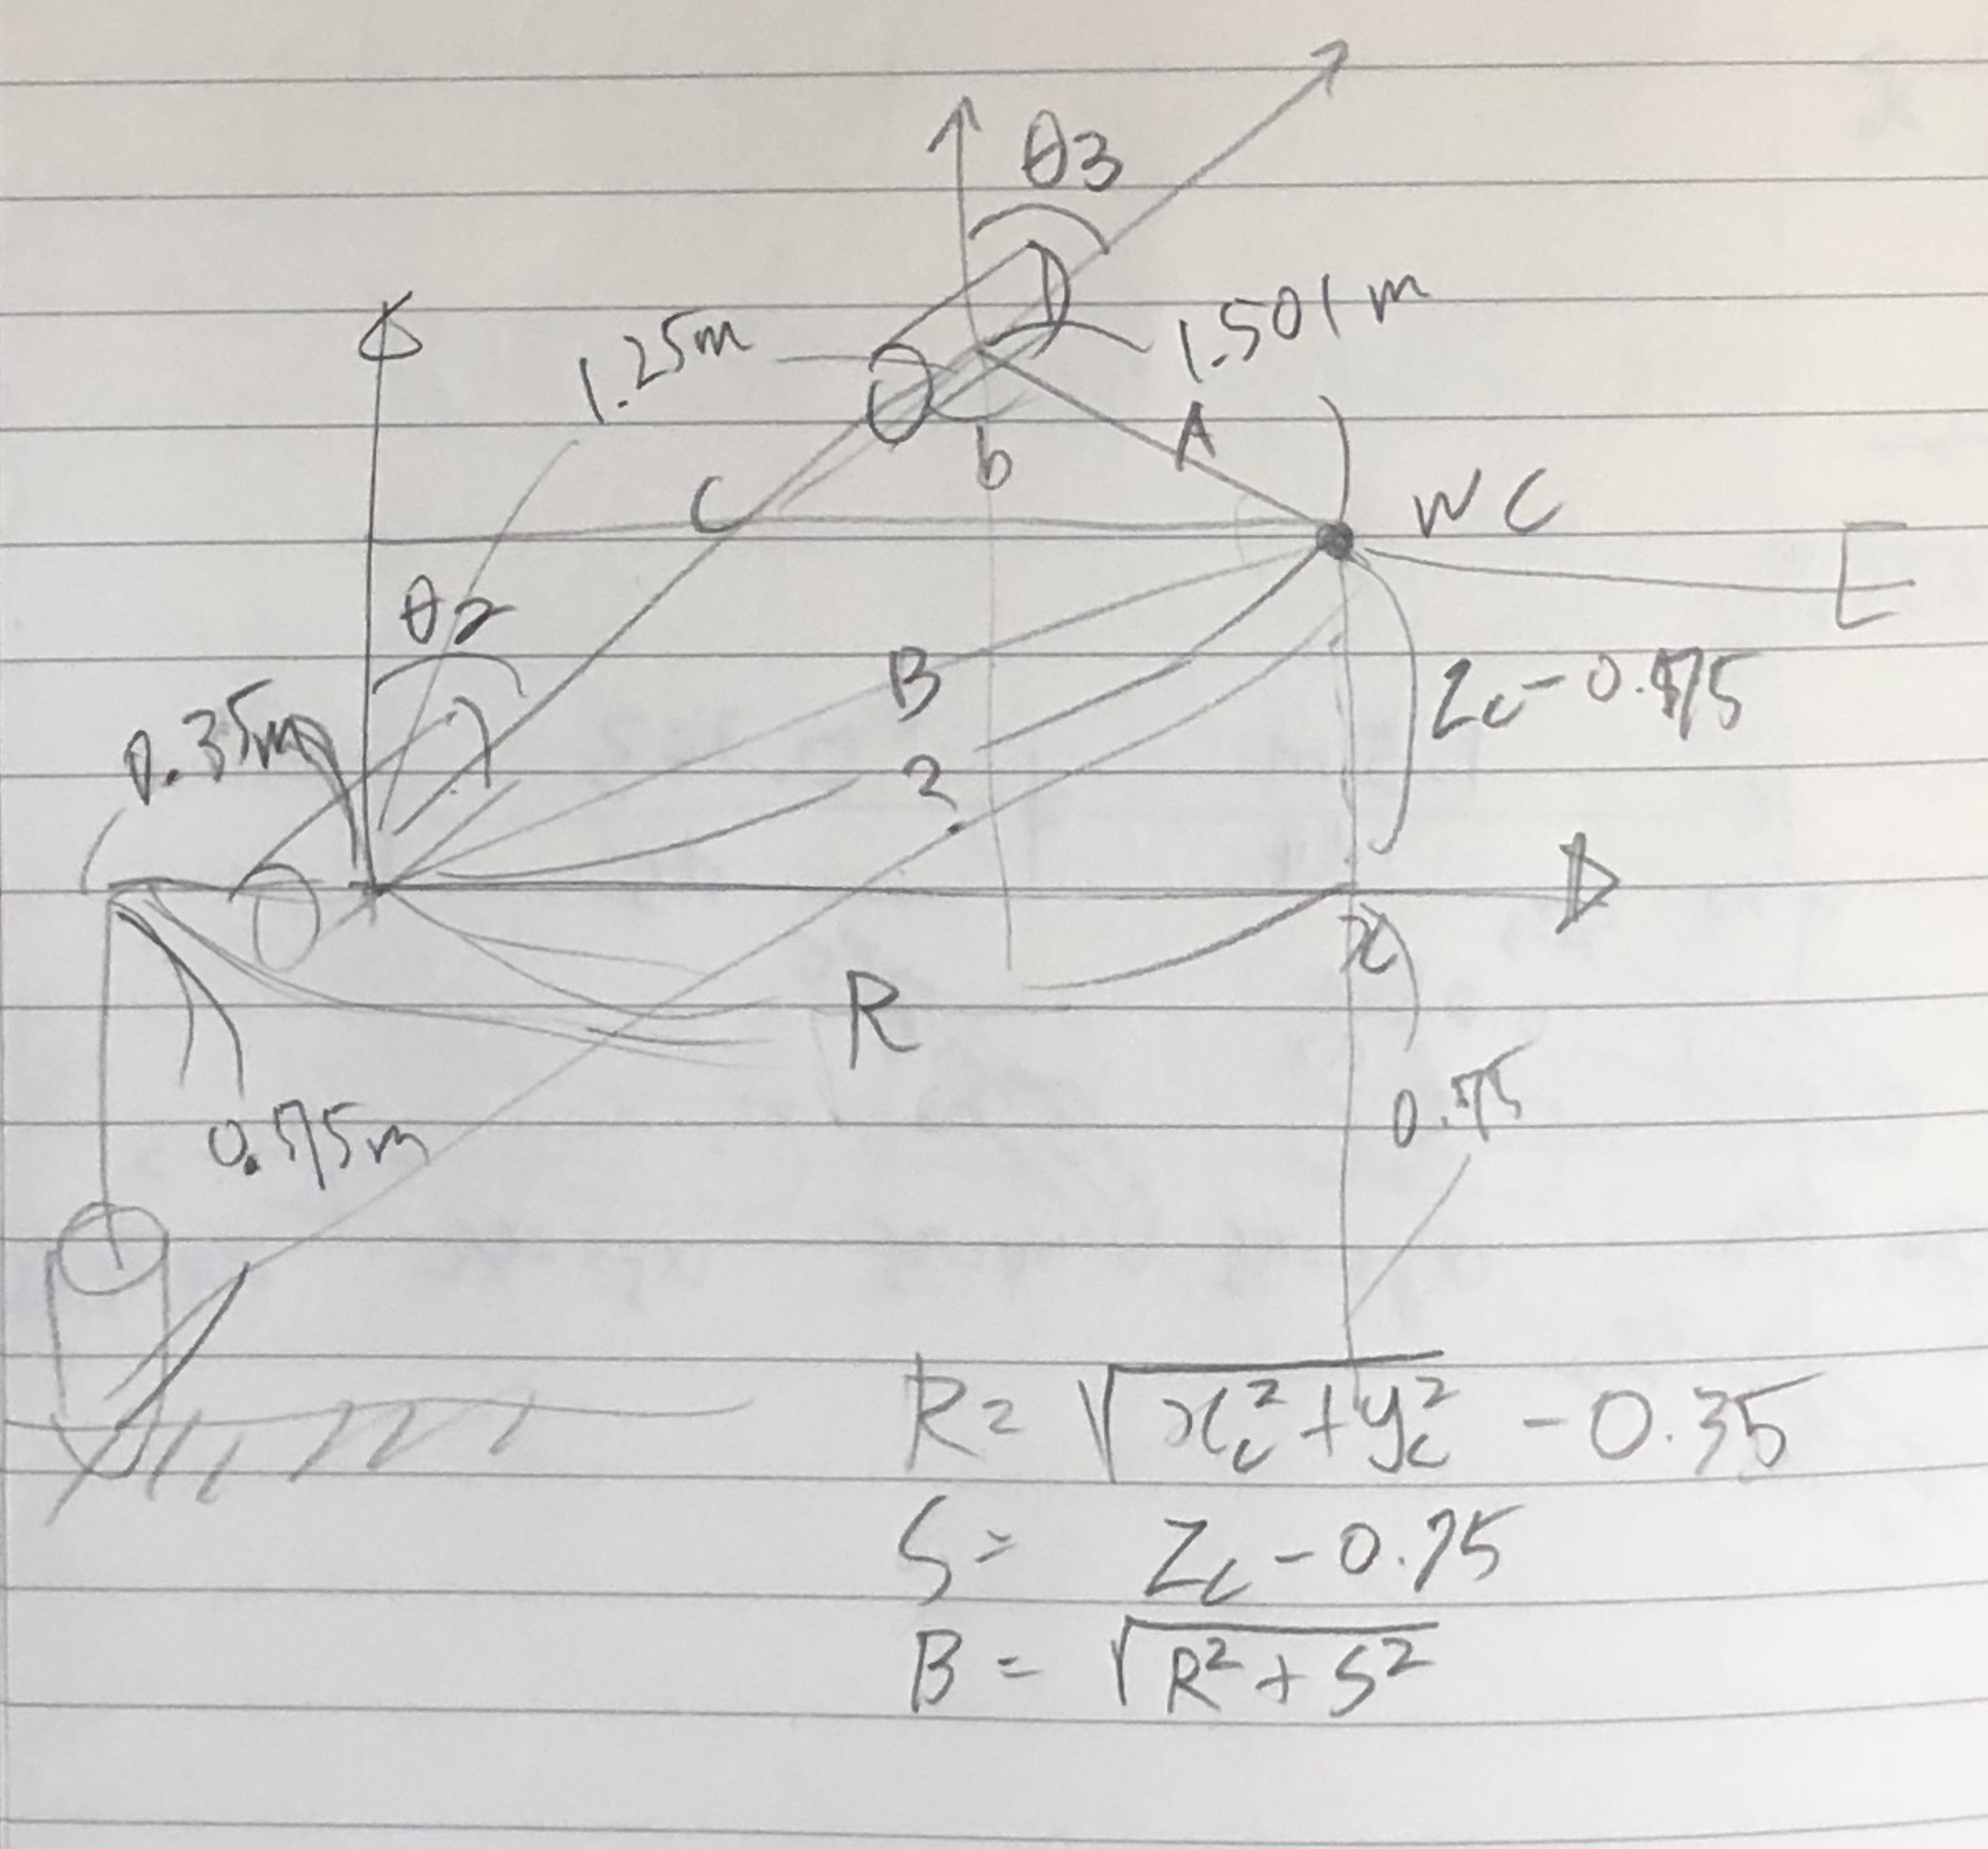 θ3
1.25m
1.501m
A
b
C
WC
E
θ2
B
Zc-0.75
0.35m
?
x
R
0.75
0.75m
R= √xc²+yc² -0.35
S= Zc-0.75
B= √R²+S²